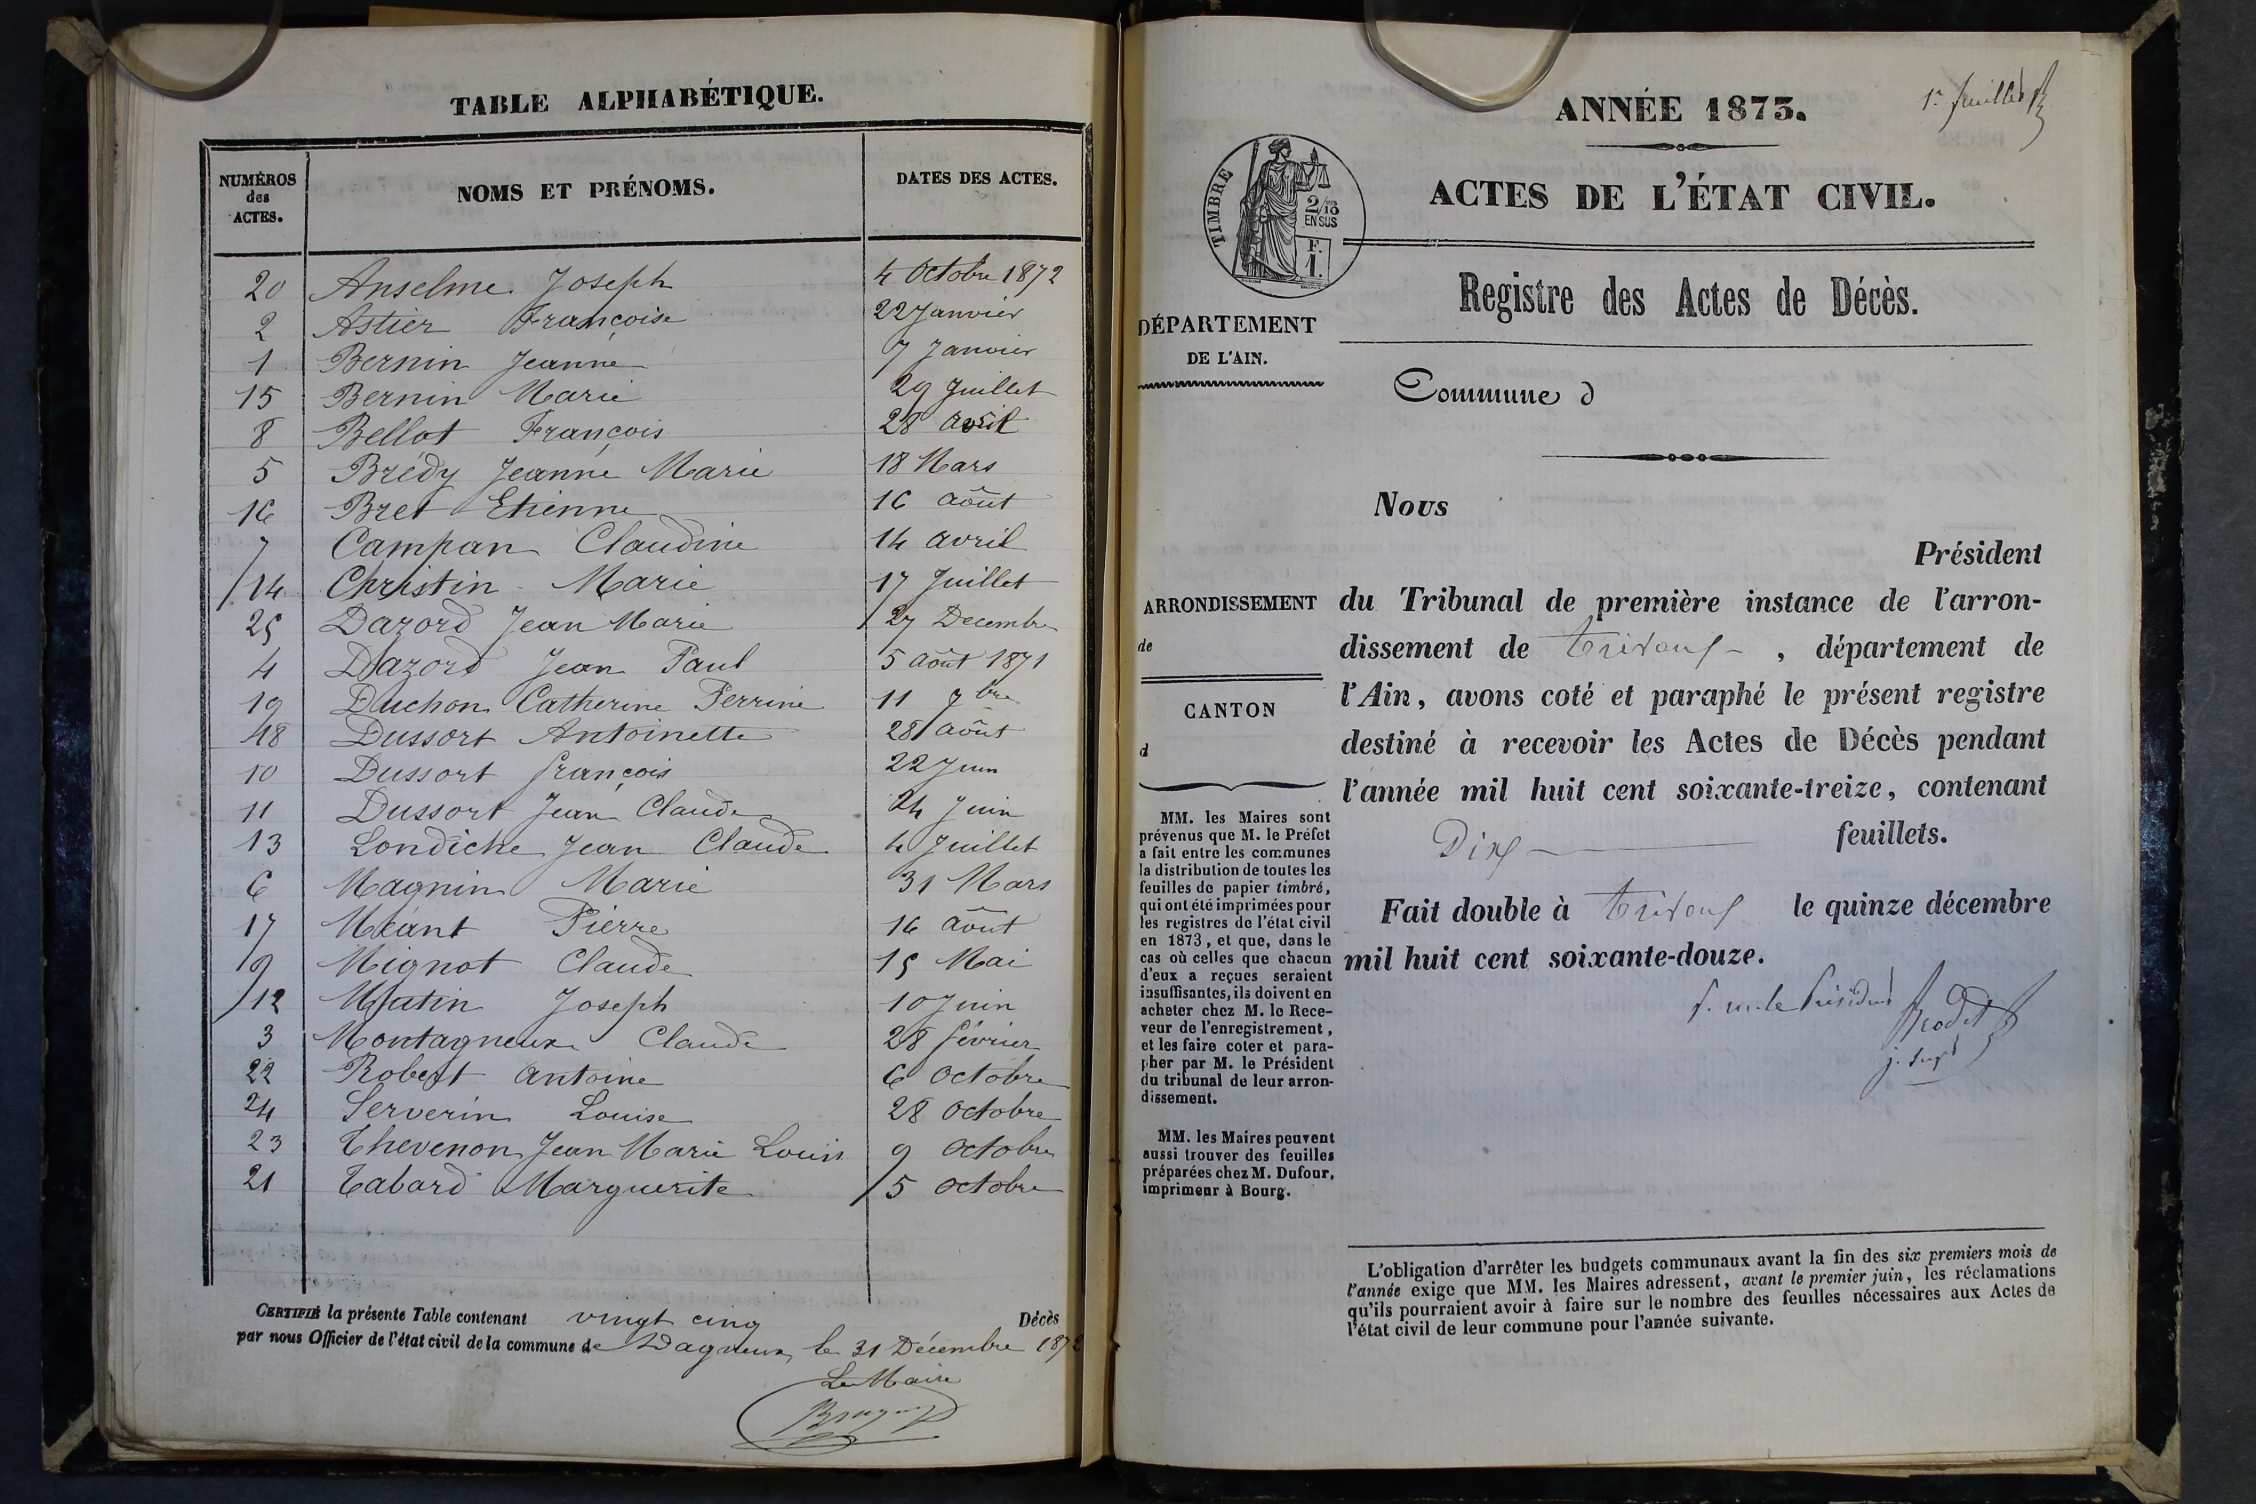 TABLE ALPHABÉTIQUE.
NUMÉROS
des
ACTES.
NOMS ET PRÉNOMS.
DATES DES ACTES.
20 Anselme Joseph 4 Octobre 1872
2 Astier Françoise 22 Janvier
1 Bernin Jeanne 7 Janvier
15 Bernin Marie 29 Juillet
8 Bellot François 28 avril
5 Brédy Jeanne Marie 18 Mars
16 Bret Etienne 16 août
7 Campan Claudine 14 avril
14 Christin Marie 17 Juillet
25 Dazord Jean Marie 27 Decembre
4 Dazord Jean Paul 5 août 1871
19 Duchon Catherine Perrine 11 7bre
18 Dussort Antoinette 28 août
10 Dussort françois 22 Juin
11 Dussort Jean Claude 24 Juin
13 Londiche Jean Claude 4 Juillet
6 Magnin Marie 31 Mars
17 Méant Pierre 16 août
9 Mignot Claude 15 Mai
12 Matin Joseph 10 Juin
3 Montagneux Claude 28 février
22 Robert Antoine 6 Octobre
24 Serverin Louise 28 Octobre
23 Thevenon Jean Marie Louis 9 octobre
21 Tabard Marguerite 5 octobre
CERTIFIÉ la présente Table contenant vingt cinq Décès
par nous Officier de l'état civil de la commune de Dagneux, le 31 Décembre 1872
Le Maire
1er feuillet
ANNÉE 1873.
ACTES DE L'ÉTAT CIVIL.
TIMBRE
2/10
EN SUS
F.
1.
Registre des Actes de Décès.
DÉPARTEMENT
DE L'AIN.
Commune d
Nous
Président
ARRONDISSEMENT
de
CANTON
d
du Tribunal de première instance de l'arron-
dissement de Trévoux , département de
l'Ain, avons coté et paraphé le présent registre
destiné à recevoir les Actes de Décès pendant
l'année mil huit cent soixante-treize, contenant
Dix feuillets.
Fait double à Trévoux le quinze décembre
mil huit cent soixante-douze.
le Président
MM. les Maires sont
prévenus que M. le Préfet
a fait entre les communes
la distribution de toutes les
feuilles de papier timbré,
qui ont été imprimées pour
les registres de l'état civil
en 1873, et que, dans le
cas où celles que chacun
d'eux a reçues seraient
insuffisantes, ils doivent en
acheter chez M. le Rece-
veur de l'enregistrement,
et les faire coter et para-
pher par M. le Président
du tribunal de leur arron-
dissement.
MM. les Maires peuvent
aussi trouver des feuilles
préparées chez M. Dufour,
imprimeur à Bourg.
L'obligation d'arrêter les budgets communaux avant la fin des six premiers mois de
l'année exige que MM. les Maires adressent, avant le premier juin, les réclamations
qu'ils pourraient avoir à faire sur le nombre des feuilles nécessaires aux Actes de
l'état civil de leur commune pour l'année suivante.